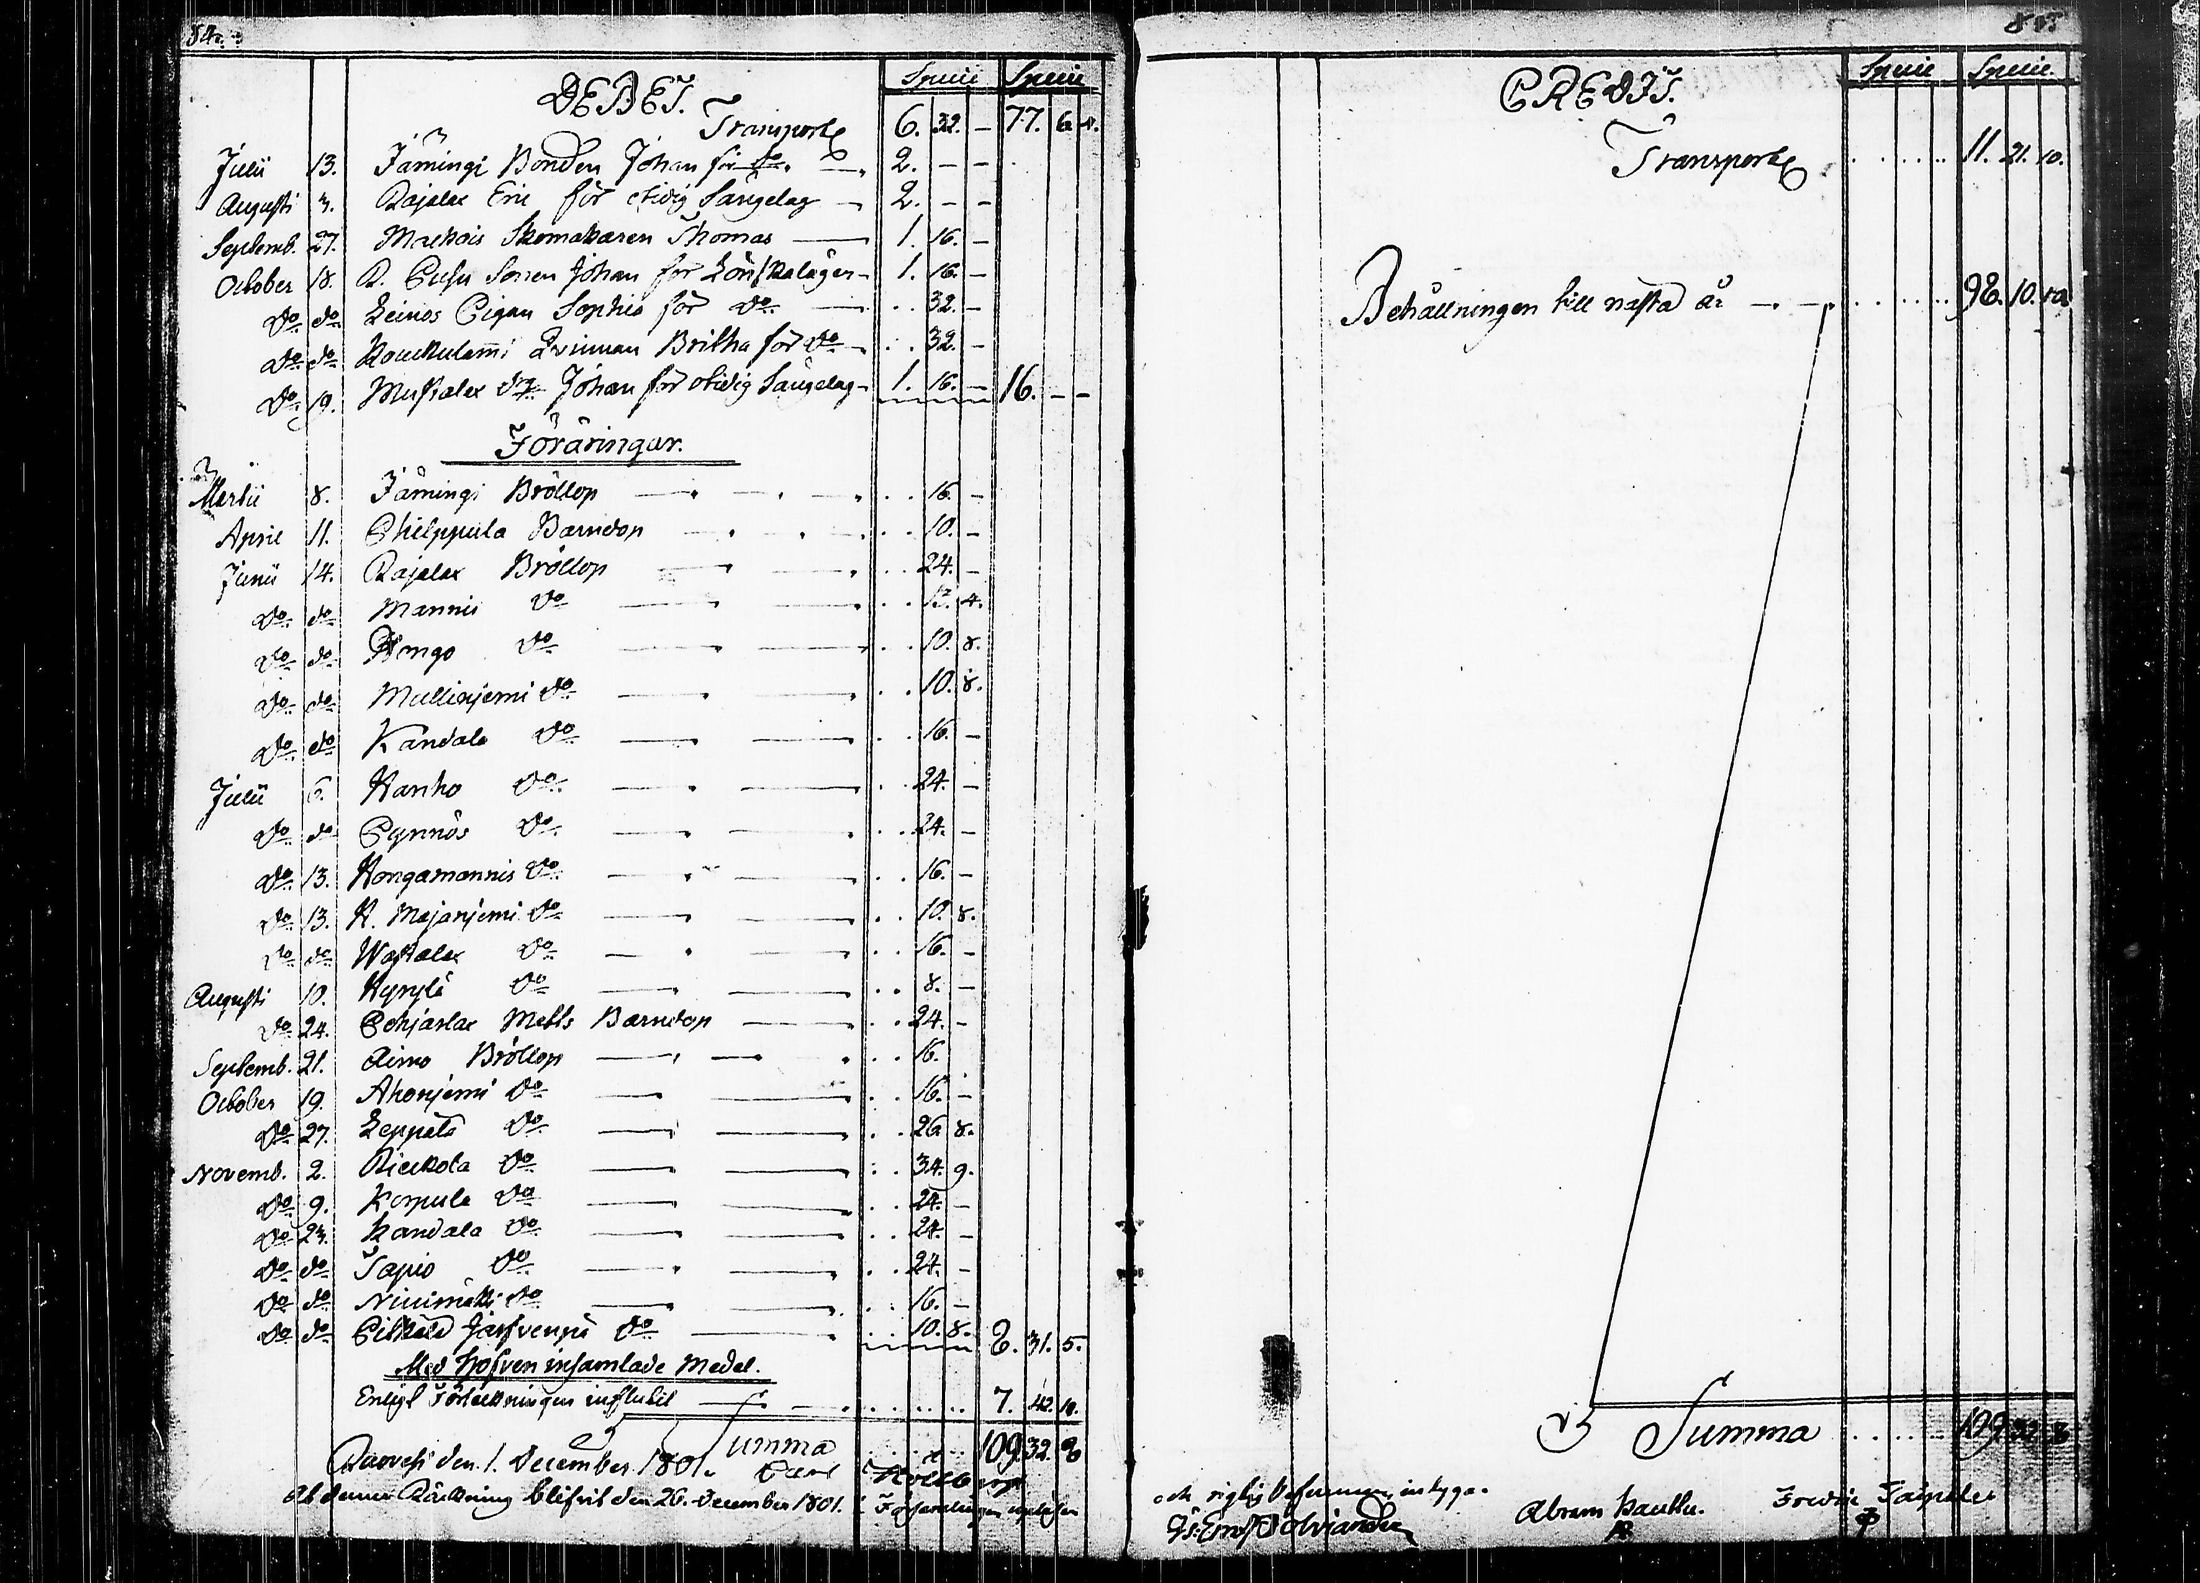 84.
DEBET. Specie Specie
Transport 6. 32. – 77. 6.
Julii 13. Jämingi Bonden Johan för do. 2. – –
Augusti 3. Rajalax Eric för otidig Sängelag – 2. – –
Septemb. 27. Markois Skomakaren Thomas — 1. 16. –
October 18. R. Sonen Johan för Lönskaläger – 1. 16. –
do do Leinos Pigan Sophia för do — . . 32. –
do do Qvinnan Britha för do – . . 32. –
do 19. Johan för otidig Sängelag – 1. 16. – 16. – –
Föräringar.
Martii 8. Jämingi Bröllop — . . 16. –
April 11. Philppula Barndop — . . 10. –
Junii 14. Rajalax Bröllop — . . 24. –
do do Mannis do — . . 4.
do do Hongo do — . . 10. 8.
do do Mullinjemi do — . . 10. 8.
do do Kandala do — . . 16. –
Julii 6. Hanho do — . . 24. –
do do Pynnös do — . . 24. –
do 13. Hongamannis do — . . 16. –
do 13. H. Majanjemi do — . . 10. 8.
do do do — . . 16. –
Augusti 10. Kyrylä do — . . 8. –
do 24. Pohjaslax Matts Barndop — . . 24. –
Septemb. 21. Aimo Bröllop — . . 16.
October 19. Ahonjemi do — . . 16. –
do 27. Leppälä do — . . 26 8.
Novemb. 2. Rieckola do — . . 34. 9.
do 9. Korpula do — . . 24. –
do 23. Kandala do — . . 24. –
do do Tapio do — . . 24. –
do do Niinimäki do — . . 16. –
do do do — . . 10. 8. 8. 31. 5.
Med Hofven insamlade Medel.
Enligt Förteckningen influtit — 7. 42. 10.
Summa 109. 32. 8
den 1. December 1801. Carl
At denna Räkning blifvit den 26. December 1801. i
85.
CREDIT. Specie Specie.
Transport . . . . . . 11. 21. 10.
Behållningen till nästa år — . . . . . . 98. 10. 10
Summa . . . . . . 109. 32. 8
och rigtig befunnen, intyga.
Abram
Fredric